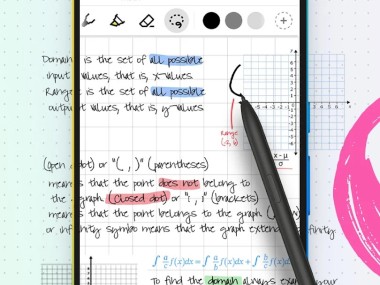 Domain is the set of all possible
input values, that is, x-values
Range is the set of all possible
output values, that is, y-values
Range
x-μ
σ
(open dot) or "( , )" (parentheses)
means that the point does not belong to
the graph (closed dot) or "[ , ]" (brackets)
means that the point belongs to the graph
or infinity symbo means that the graph extend infinity
∫ᵃ꜀ f(x)dx = ∫ᵃ_b f(x)dx + ∫ᵇ꜀ f(x)dx
To find the domain always your